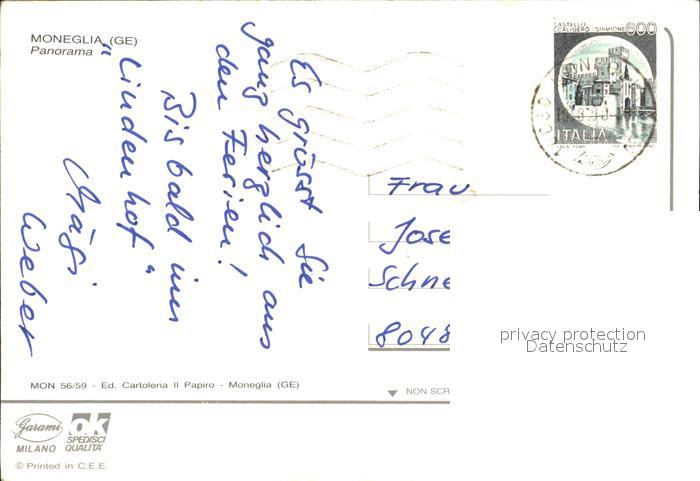 MONEGLIA (GE)
Panorama
CASTELLO
SCALIGERO - SIRMIONE
600
ITALIA
Es grüsst Sie
ganz herzlich aus
den Ferien!
Bis bald im
"Lindenhof"
Mägi
Weber
Frau
Jose
Schne
8048
privacy protection
Datenschutz
MON 56/59 - Ed. Cartoleria Il Papiro - Moneglia (GE)
NON SCR
Garami
MILANO
ok
SPEDISCI
QUALITÀ
© Printed in C.E.E.